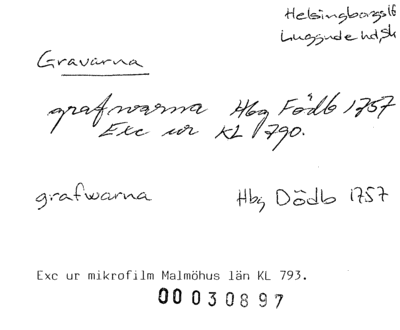 Helsingborgs lfs
Luggude hd, Sk
Gravarna
grafwarna Hbg Födb 1757
Exc ur KL 790.
grafwarna Hbg Dödb 1757
Exc ur mikrofilm Malmöhus län KL 793.
00030897